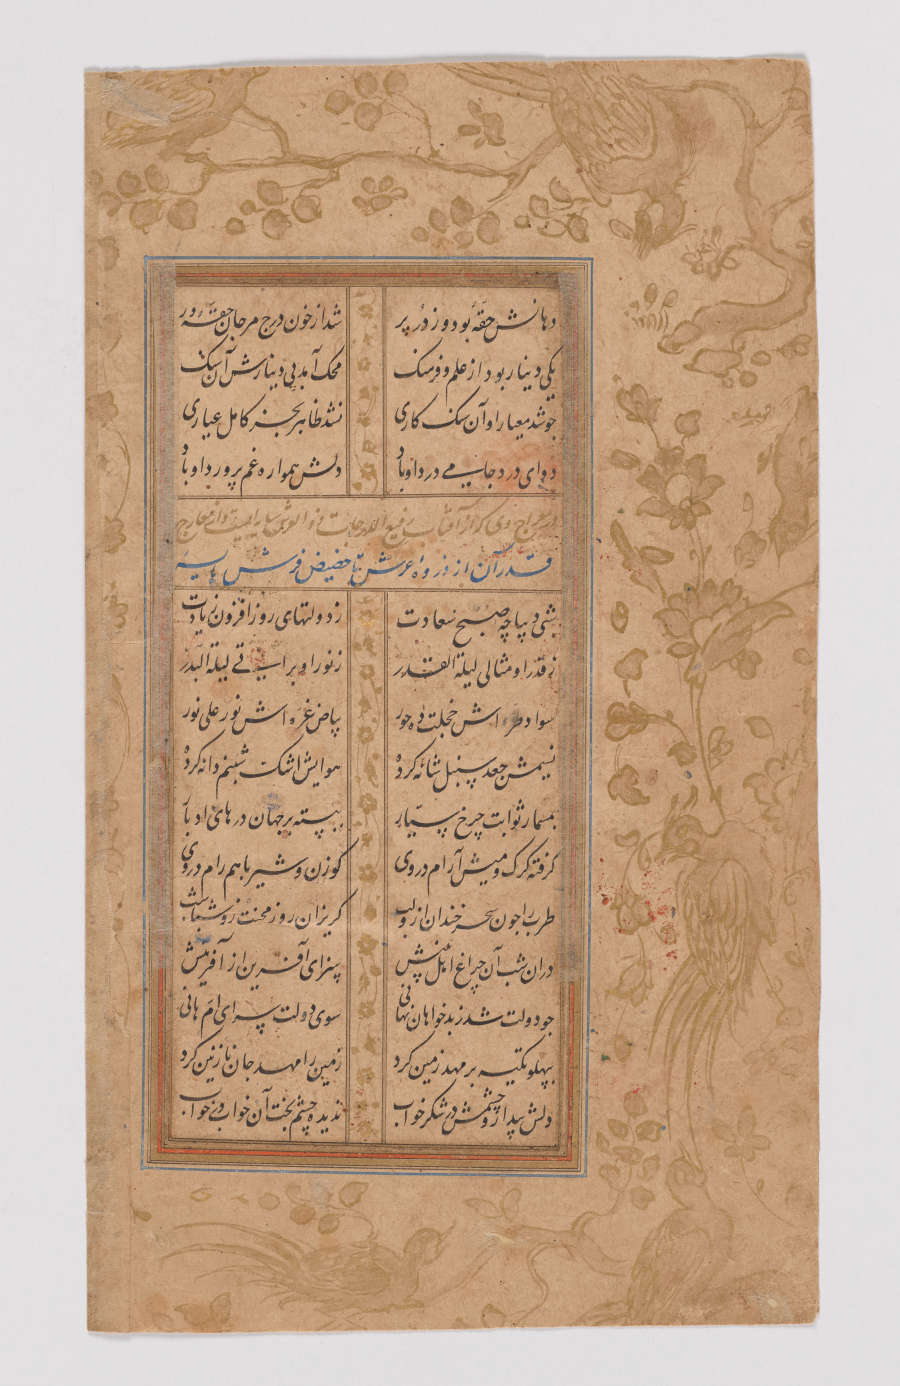 دهانش حقه بود و ز در پر شد از خون درج مرجان حقهٔ در
یکی دینار بود از علم و فرهنگ محک آمد پی دینارش آن سنگ
چو شد معیار او آن سنگ کاری نشد ظاهر بجز کامل عیاری
دوای درد جامی درد او باد دلش همواره غم پرورد او باد
در معراج وی که از آفتاب رفیع الدرجات ذو العرش سایه ایست و از معارج
قدر آن از ذروهٔ عرش تا حضیض فرش پایه
شبی دیباچه صبح سعادت ز دولتهای روز افزون زیادت
ز قدر او مثالی لیلة القدر ز نور او براتی لیلة البدر
سواد طره اش خجلت ده حور بیاض غره اش نور علی نور
نسیمش جعد سنبل شانه کرده هوایش اشک شبنم دانه کرده
بمسمار ثوابت چرخ سیار ببسته بر جهان درهای ادبار
گرفته گرگ و میش آرام در وی گوزن و شیر با هم رام در وی
طرب را چون سحر خندان ازو لب گریزان روز محنت زو شباشب
دران شب آن چراغ اهل بینش سزای آفرین از آفرینش
چو دولت شد ز بدخواهان نهانی سوی دولت سرای ام هانی
بپهلو تکیه بر مهد زمین کرد زمین را مهد جان نازنین کرد
دلش بیدار و چشمش در شکر خواب ندیده چشم بخت آن خواب در خواب